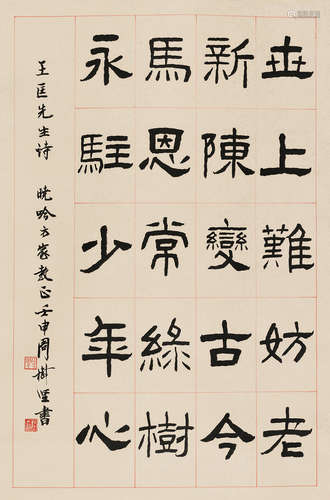 世上難妨老
新陳變古今
馬恩常綠樹
永駐少年心
王匡先生诗 晓吟方家教正壬申周樹坚書